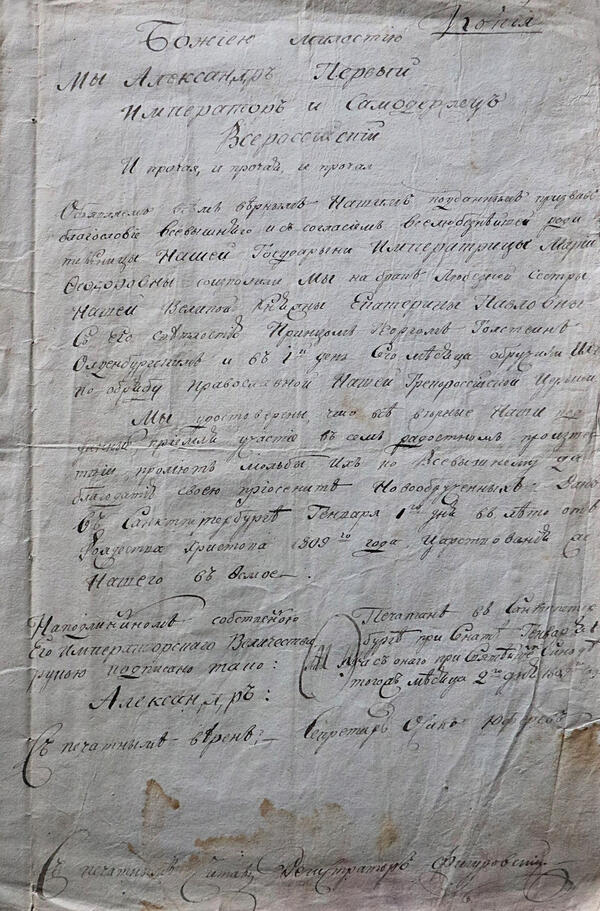 Копія
Божіею милостію
Мы Александръ Первый
Императоръ и Самодержецъ
Всероссійскій
И прочая, и прочая, и прочая
Объявляемъ всѣмъ вѣрнымъ Нашимъ подданнымъ призвавъ
благословіе всевышняго и съ согласіемъ вселюбезнѣйшей роди
тельницы Нашей Государыни Императрицы Маріи
Ѳеодоровны соизволили Мы на бракъ Любезной Сестры
Нашей Великой Княжны Екатерины Павловны
Съ Его Свѣтлостію Принцомъ Георгомъ Голстеинъ
Олденбургскимъ и въ 1й день Сего мѣсяца обручили Ихъ
по обряду православной Нашей Грекороссійской Церкви
Мы удостоверены, что всѣ вѣрные Наши под
данныи пріемля участіе въ семъ радостномъ произше
ствіи, пролиютъ мольбы Ихъ ко Всевышнему да
благодатію своею приосенитъ Новообрученныхъ. Данъ
Въ Санктпетербургѣ Генваря 1го дня въ лѣто отъ
Рождества Христова 1809го года. Царствованія же
Нашего въ осмое.
На подлинномъ собственою
Его Императорскаго Величества
рукою подписано тако:
Александръ:
Печатанъ въ Санктпетер
бургѣ при Сенатѣ Генваря 1
А съ онаго при Святѣйш Синод
тогожъ мѣсяца 2го дня
Съ печатнымъ вѣренъ:
Секретарь Юферевъ
Съ печатнымъ читалъ Регистраторъ Фигуровскій